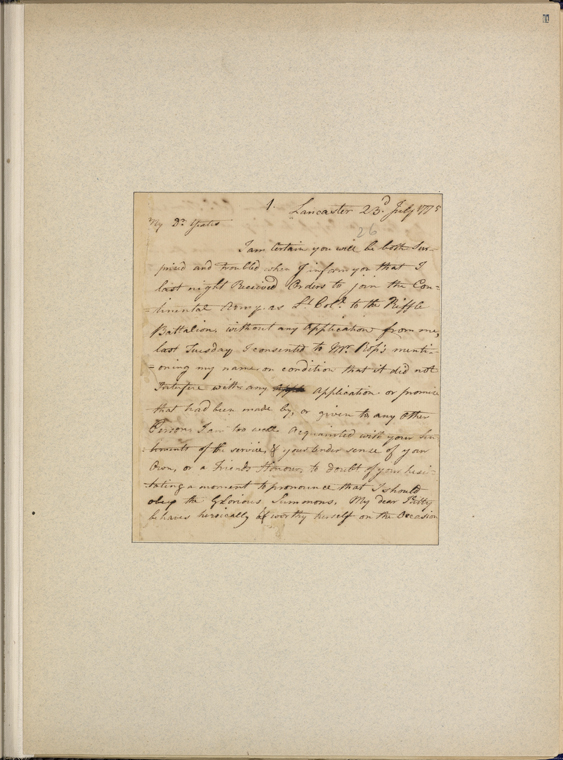 1. Lancaster 23d July 1775
26
My Dr Yeates
I am Certain you will be both Sur-
prised and troubled when I inform you that I
last night Received Orders to join the Con-
tinental Army as Lt Colo. to the Riffle
Battalion, without any Application from me,
last Tuesday I consented to Mr. Ross's menti-
-oning my name on condition that it did not
Interfere with any Application or promise
that had been made by, or given to any Other
Person. I am too well Acquainted with your Sen-
timents of the service, & your tender sence of your
Own, or a Friends Honour, to doubt of your hesi-
-tating a moment to pronounce that I should
obey the Glorious Summons. My dear Bettsy
behaves heroically & worthy herself on the Occasion